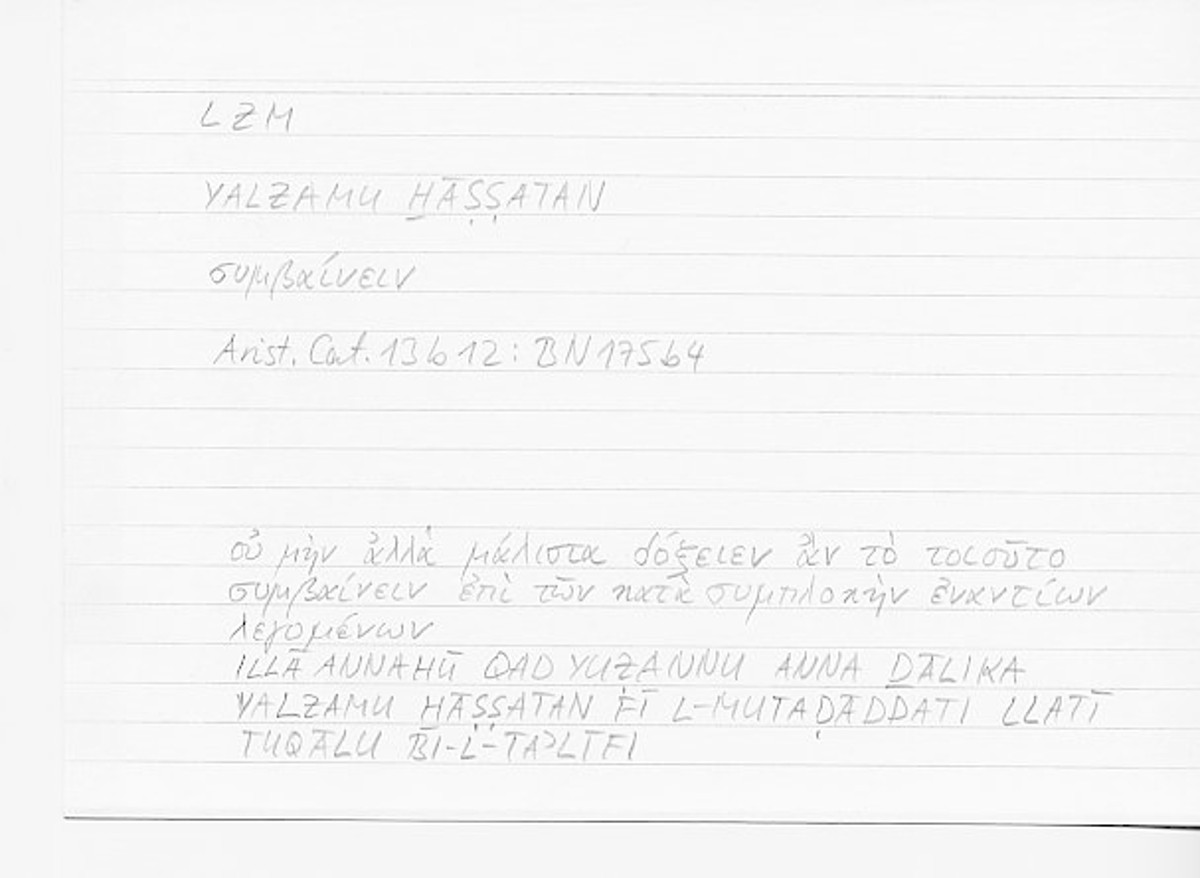 LZM
YALZAMU H̱ĀṢṢATAN
συμβαίνειν
Arist. Cat. 13b12: BN175b4
οὐ μὴν ἀλλὰ μάλιστα δόξειεν ἂν τὸ τοιοῦτο
συμβαίνειν ἐπὶ τῶν κατὰ συμπλοκὴν ἐναντίων
λεγομένων
ILLĀ ANNAHŪ QAD YUẒANNU ANNA ḎĀLIKA
YALZAMU H̱ĀṢṢATAN FĪ L-MUTAḌĀDDATI LLATĪ
TUQĀLU BI-L-TAʾLĪFI